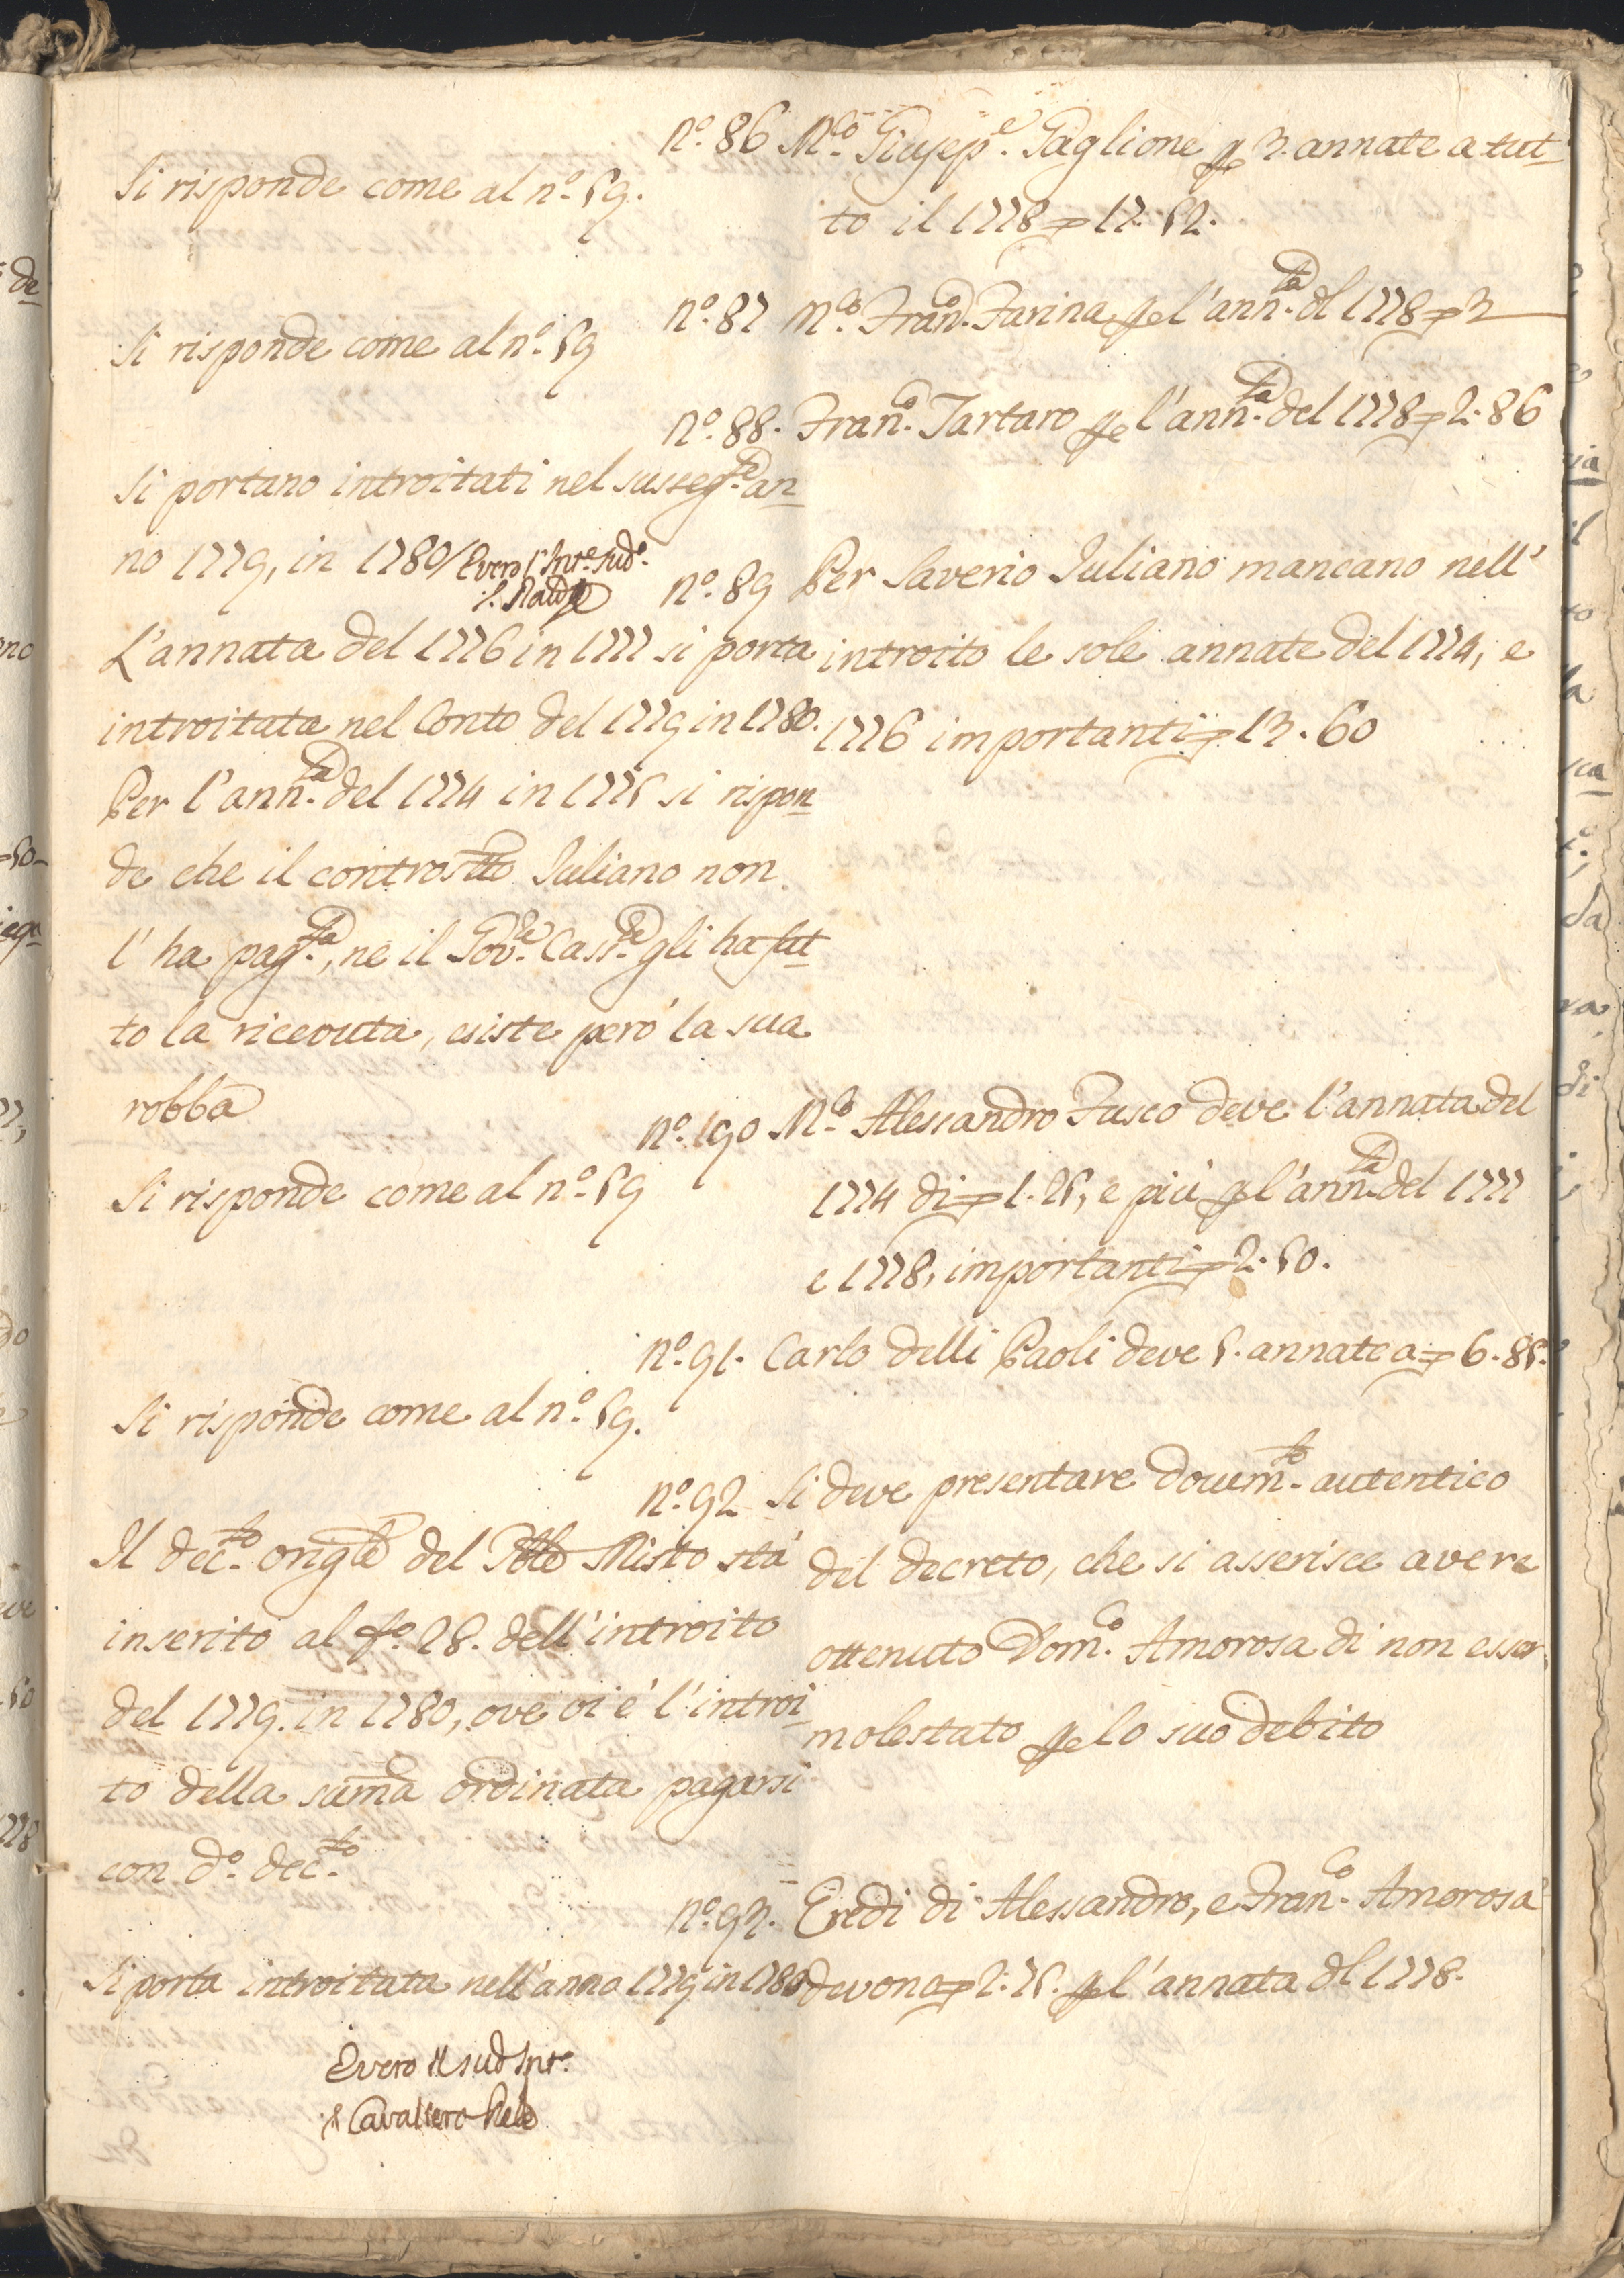 Nº. 86 M.co Giusep.e Paglione p 3. annate a tut-
to il 1778 = 17. 52.
Si risponde come al nº. 59.
Nº. 87 M.co Fran.co Farina p l'ann.ta dl 1778 = 3
Si risponde come al nº. 59
Nº. 88. Fran.co Tartaro p l'ann.ta del 1778 = 2. 86
Si portano introitati nel susseg.te an-
no 1779, in 1780/ E vero l'Int.e Sud.o
Nº. 89 Per Saverio Iuliano mancano nell'
introito le sole annate del 1774, e
1776 importanti = 13. 60
L'annata del 1776 in 1777 si porta
introitata nel Conto del 1779 in 1780.
Per l'ann.ta del 1774 in 1775 si rispon-
de che il controstto Iuliano non
l'ha pag.ta, ne il Gov.re Cass.re gli ha fat-
to la riceouta, esiste però la sua
robba
Nº. 190 M.co Alessandro Fusco deve l'annata del
1774 di = 1. 25, e più p l'ann.ta del 1777
e 1778, importanti = 2. 50.
Si risponde come al nº. 59
Nº. 91. Carlo delli Paoli deve 5. annate a = 6. 85.
Si risponde come al nº. 59.
Nº. 92 Si deve presentare docum.to autentico
del decreto, che si asserisce avere
ottenuto Dom.co Amorosa di non esser
molestato p lo suo debito
Il dec.to origle del Tble Misto stà
inserito al fº. 28. dell'introito
del 1779. in 1780, ove vi è l'introi-
to della summa ordinata pagarsi
con dº. dec.to
Nº. 93. Eredi di Alessandro, e Fran.co Amorosa
devono = 2. 75. p l'annata dl 1778.
Si porta introitata nell'anno 1779 in 1780
E vero il sud Int.e
Cavaliero